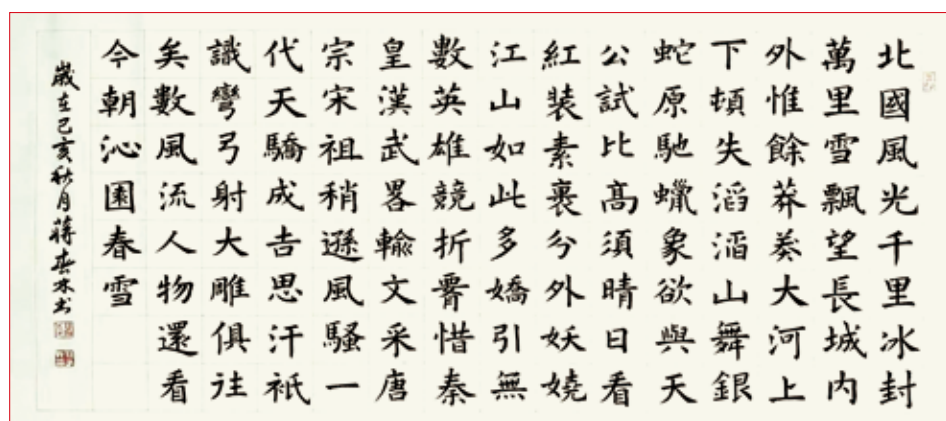 北國風光千里冰封
萬里雪飄望長城内
外惟餘莽莽大河上
下頓失滔滔山舞銀
蛇原馳蠟象欲與天
公試比高須晴日看
紅裝素裹分外妖嬈
江山如此多嬌引無
數英雄競折惜秦
皇漢武畧輸文采唐
宗宋祖稍遜風騷一
代天驕成吉思汗衹
識彎弓射大雕俱往
矣數風流人物還看
今朝沁園春雪
歲在己亥秋月蔣春书